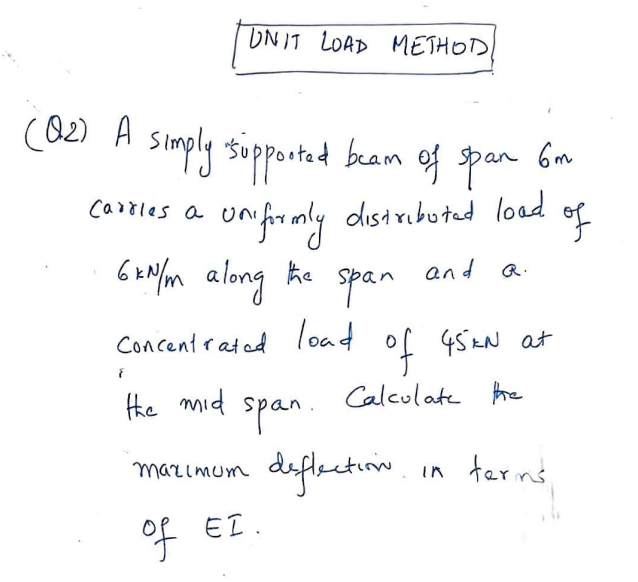 UNIT LOAD METHOD
(Q2) A simply supported beam of span 6m
carries a uniformly distributed load of
6kN/m along the span and a
concentrated load of 45kN at
the mid span. Calculate the
maximum deflection in terms
of EI.